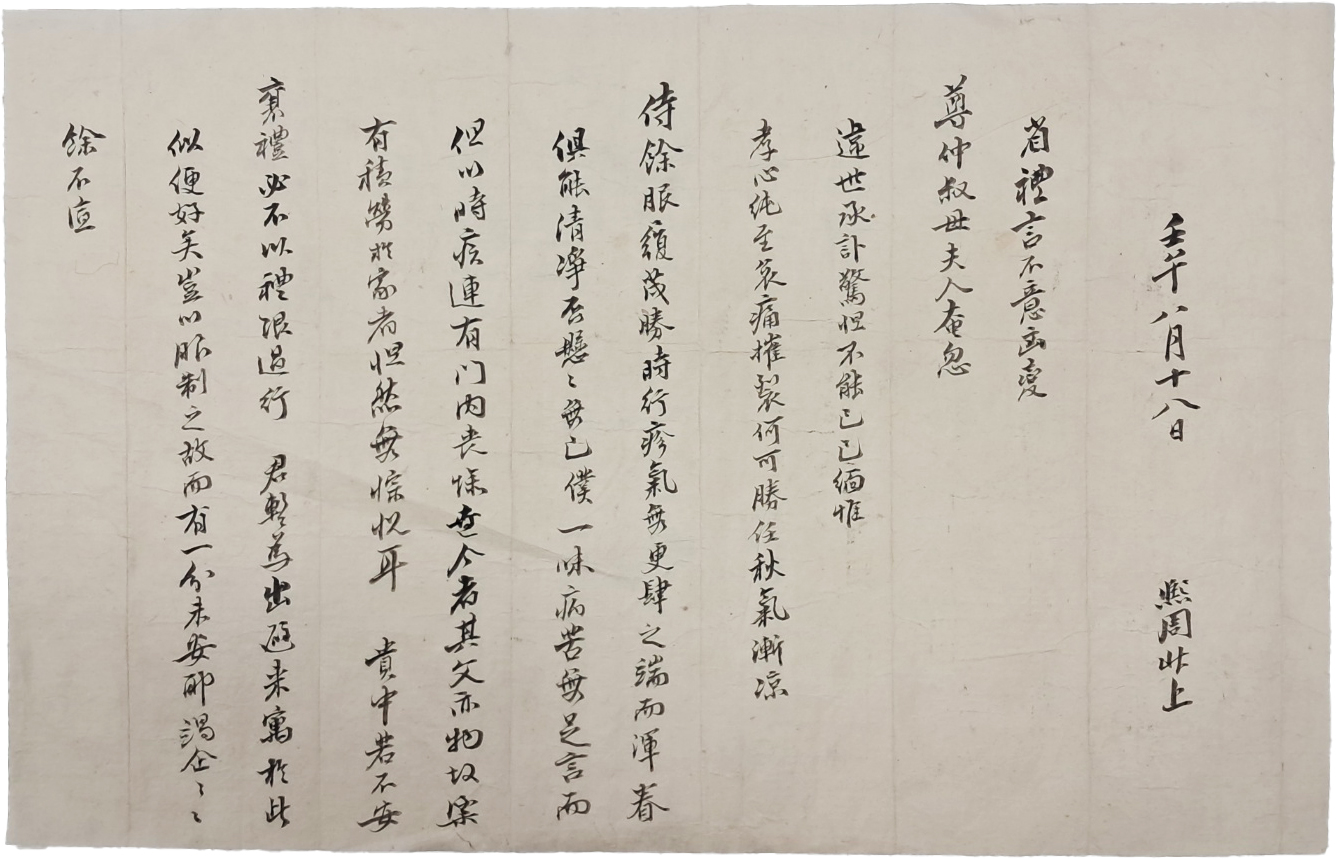 壬午八月十八日 熙周狀上
省禮言不意凶變
尊仲叔母夫人奄忽
違世承訃驚怛不能已已緬惟
孝心純至哀痛摧裂何可勝任秋氣漸凉
侍餘服履茂勝時行疹氣無更肆之端而渾眷
俱能淸凈否懸〻無已僕一味病苦無足言而
但以時疾連有門內喪慽查今者其父亦物故案
有積勞於家者怛然無悰悅耳 貴中若不安
襄禮必不以禮限過行 君輩爲出避來寓於此
似便好矣豈以服制之故而有一分未安耶渴企〻〻
餘不宣